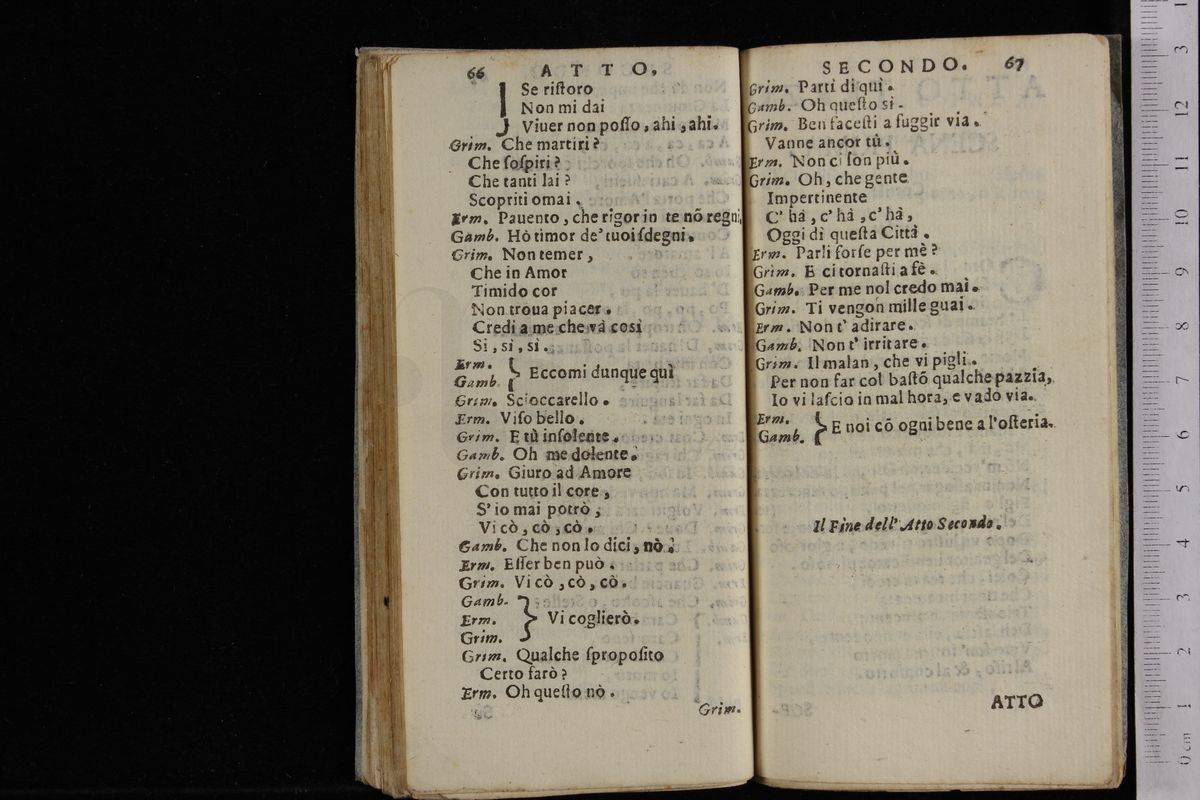 66 ATTO,
Se riſtoro
Non mi dai
Viuer non poſſo, ahi, ahi.
Grim. Che martiri?
Che ſoſpiri?
Che tanti lai?
Scopriti omai.
Erm. Pauento, che rigor in te nõ regni,
Gamb. Hò timor de' tuoi ſdegni.
Grim. Non temer,
Che in Amor
Timido cor
Non troua piacer.
Credi a me che và così
Si, sì, sì.
Erm.
Gamb. Eccomi dunque quì
Grim. Scioccarello.
Erm. Viſo bello.
Grim. E tù inſolente.
Gamb. Oh me dolente.
Grim. Giuro ad Amore
Con tutto il core,
S'io mai potrò,
Vi cò, cò, cò.
Gamb. Che non lo dici, nò.
Erm. Eſſer ben può.
Grim. Vi cò, cò, cò.
Gamb.
Erm. Vi coglierò.
Grim.
Grim. Qualche ſpropoſito
Certo farò?
Erm. Oh queſto nò.
Grim.
SECONDO. 67
Grim. Parti di quì.
Gamb. Oh queſto sì.
Grim. Ben faceſti a fuggir via.
Vanne ancor tù.
Erm. Non ci ſon più.
Grim. Oh, che gente
Impertinente
C' hà, c' hà, c' hà,
Oggi dì queſta Città.
Erm. Parli forſe per mè?
Grim. E ci tornaſti a fè.
Gamb. Per me nol credo mai.
Grim. Ti vengon mille guai.
Erm. Non t' adirare.
Gamb. Non t' irritare.
Grim. Il malan, che vi pigli.
Per non far col baſtõ qualche pazzia,
Io vi laſcio in mal hora, e vado via.
Erm.
Gamb. E noi cõ ogni bene a l'oſteria.
Il Fine dell' Atto Secondo.
ATTO
0 cm 1 2 3 4 5 6 7 8 9 10 11 12 3 1